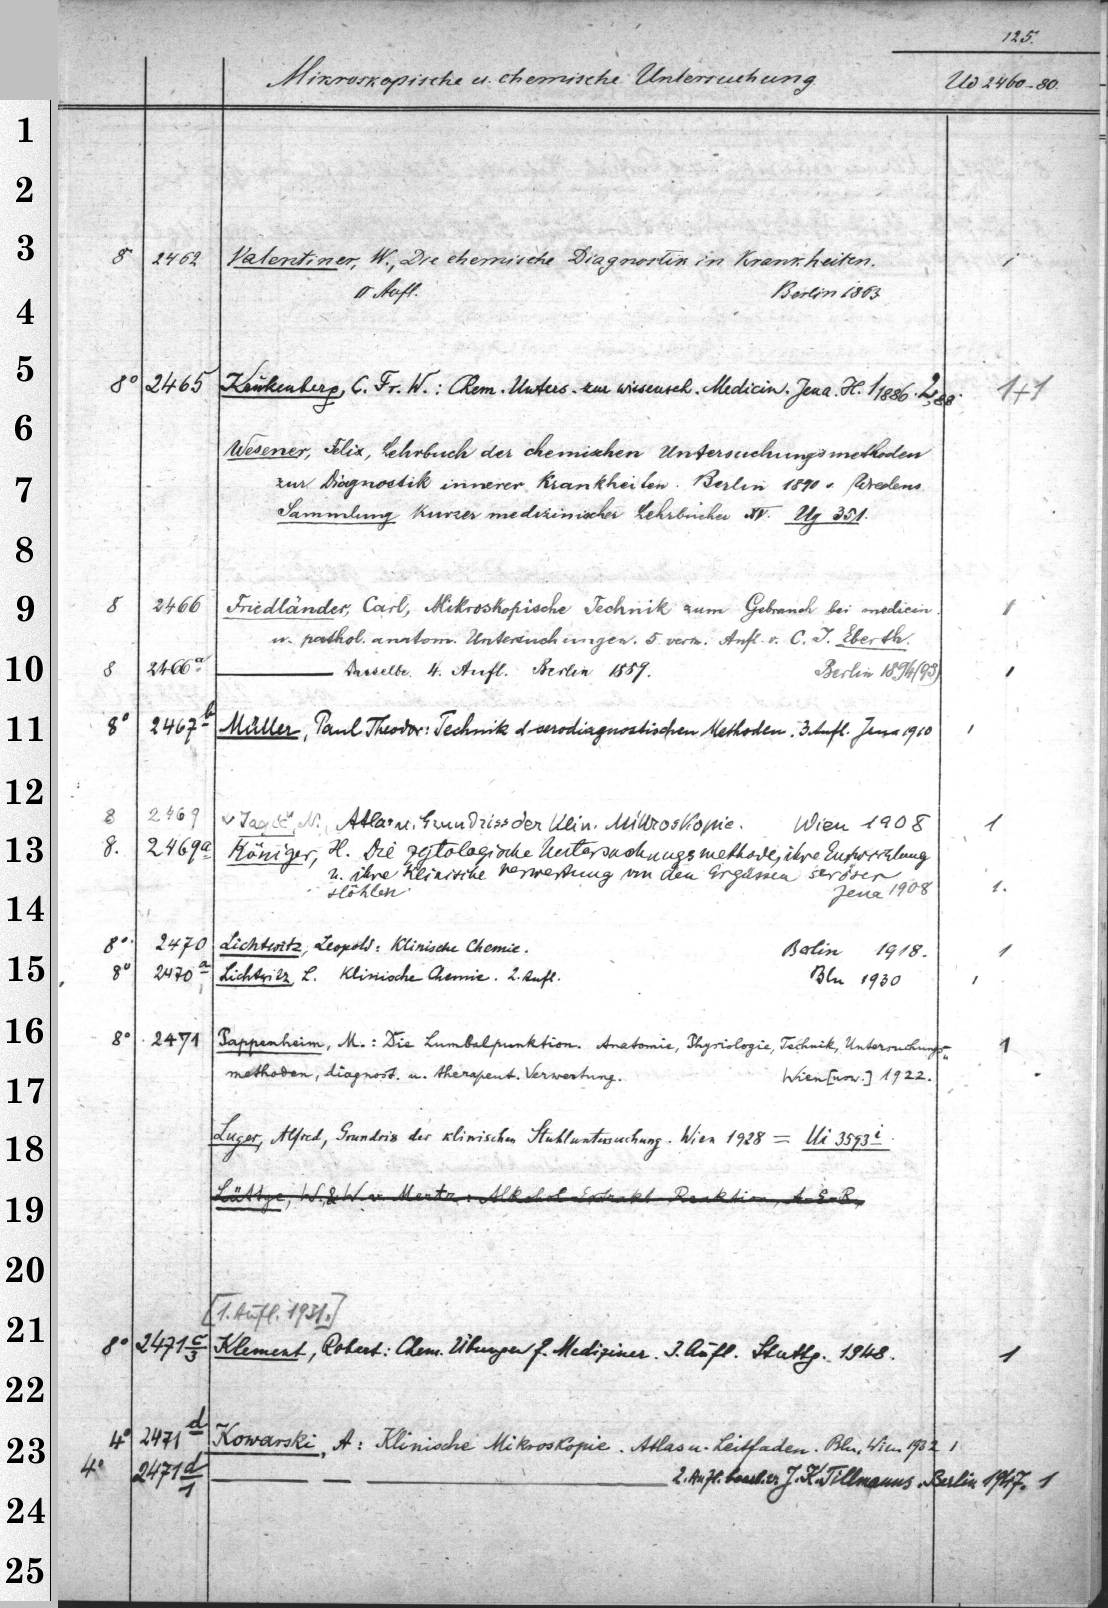 125.
Mikroskopische u. chemische Untersuchung Ud 2460-80.
1
2
3 8 2462 Valentiner, W., Die chemische Diagnostik in Krankheiten. 1
4 II Aufl. Berlin 1863
5 8° 2465 Krukenberg, C. Fr. W.: Chem. Unters. zur wissensch. Medicin. Jena. H. 1/1886. 2,88. 1+1
6 Wesener, Felix, Lehrbuch der chemischen Untersuchungsmethoden
7 zur Diagnostik innerer Krankheiten. Berlin 1890. Wredens
Sammlung kurzer medizinischer Lehrbücher XV. Ug 351.
8
9 8 2466 Friedländer, Carl, Mikroskopische Technik zum Gebrauch bei medicin. 1
u. pathol. anatom. Untersuchungen. 5. verm. Aufl. v. C. J. Eberth.
10 8 2466a Dasselbe. 4. Aufl. Berlin 1889. Berlin 1894(93) 1
11 8° 2467b Müller, Paul Theodor: Technik d serodiagnostischen Methoden. 3. Aufl. Jena 1910 1
12
8 2469 v Jagić, N., Atlas u. Grundriss der klin. Mikroskopie. Wien 1908 1
13 8. 2469a Königer, H. Die zytologische Untersuchungsmethode, ihre Entwicklung
u. ihre klinische Verwertung von den Ergüssen seröser
14 Höhlen Jena 1908 1.
8°. 2470 Lichtwitz, Leopold: Klinische Chemie. Berlin 1918. 1
15 8° 2470a Lichtwitz, L. Klinische Chemie. 2. Aufl. Bln 1930 1
16 8° 2471 Pappenheim, M.: Die Lumbalpunktion. Anatomie, Physiologie, Technik, Untersuchungs- 1
17 methoden, diagnost. u. therapeut. Verwertung. Wien [usw.] 1922.
18 Luger, Alfred, Grundris der klinischen Stuhluntersuchung. Wien 1928 = Ui 3593i.
19 Lüttge, W. & W. v. Mertz: Alkohol-Extrakt-Reaktion, A-E-R,
20
[1. Aufl. 1931.]
21 8° 2471c/3 Klement, Robert: Chem. Übungen f. Mediziner. 3. Aufl. Stuttg. 1948. 1
22
23 4° 2471d Kowarski, A: Klinische Mikroskopie. Atlas u. Leitfaden. Bln, Wien 1932 1
4° 2471d/1 2. Aufl. bearb. v. J. K. Tillmanns. Berlin 1947. 1
24
25